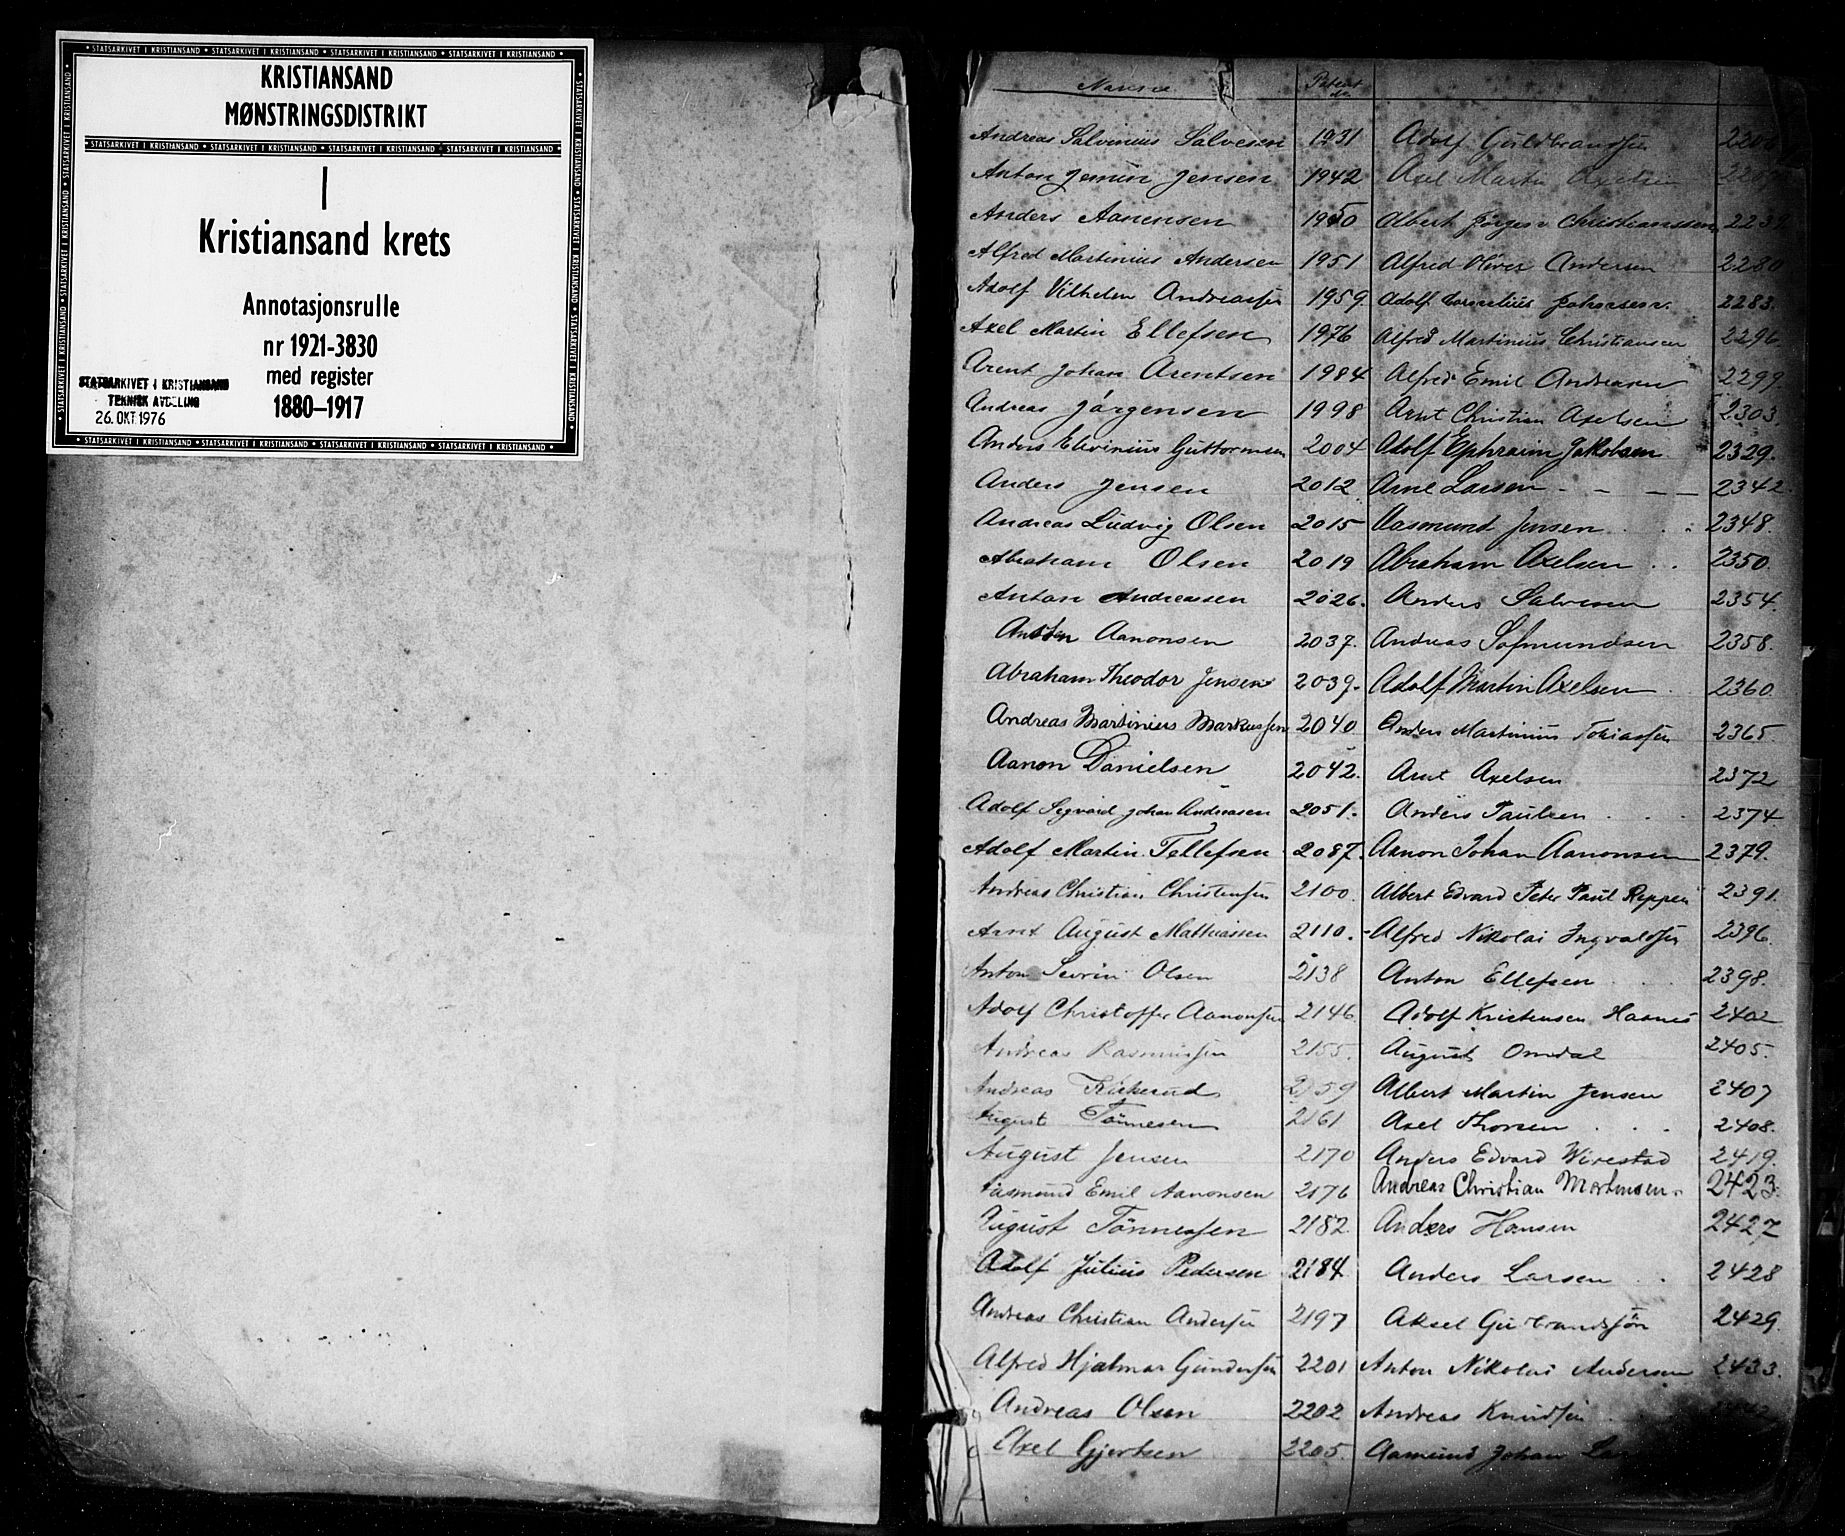 KRISTIANSAND
MØNSTRINGSDISTRIKT
I
Kristiansand krets
Annotasjonsrulle
nr 1921-3830
med register
1880–1917
STATSARKIVET I KRISTIANSAND
TEKNISK AVDELING
26. OKT 1976
Navne Patent
Andreas Salvesen 1931 Adolf Guldbrandsen
Anton Jensen 1942 Axel Martin Axelsen
Anders Aanensen 1950 Albert Christianssen 2239
Alfred Martinius Andersen 1951 Alfred Oliver Andersen 2280
Adolf Vilhelm Andreassen 1959. Adolf Cornelius Johnsen 2283.
Axel Martin Ellefsen 1976 Alfred Martinius Christiansen 2296
Arent Johan Arentsen 1984 Alfred Emil Andreasen 2299
Andreas Jörgensen 1998 Arnt Christian Axelsen 2303
Anders Guttormsen 2004 Adolf Ephraim Jakobsen 2329.
Anders Jensen 2012 Arne Larsen - - - - 2342
Andreas Ludvig Olsen 2015 Aasmund Jensen 2348.
Abraham Olsen 2019 Abraham Axelsen . . 2350.
Anton Andreassen 2026. Anders Salvesen 2354.
Anton Aanonsen 2037. Andreas 2358.
Abraham Theodor Jensen 2039. Adolf Martin Axelsen 2360
Andreas Martinius Markussen 2040 Anders Martinius Tobiassen 2365
Aanon Danielsen 2042. Arnt Axelsen 2372
Adolf Sigvard Johan Andreasen 2051. Anders Paulsen . . . 2374
Adolf Martin Tellefsen 2087. Aanon Johan Aanonsen 2379.
Andreas Christian Christensen 2100 Albert Edvard Peter Paul Reppen 2391
Arnt August Mathiassen 2110. Alfred Nikolai Ingvaldsen 2396
Anton Severin Olsen 2138 Anton Ellefsen . . . 2398.
Adolf Christoffer Aanonsen 2146 Adolf Kristensen Haanes 2402
Andreas Rasmussen 2155. August Omdal 2405.
Andreas 2159 Albert Martin Jensen 2407
August Tönnesen 2161 Axel Thorsen . . . 2408.
August Jensen 2170 Anders Edvard Wirestad 2419.
Aasmund Emil Aanonsen 2176 Andreas Christian Mortensen 2423.
August Tönnessen 2182 Anders Hansen 2427
Adolf Julius Pedersen 2184 Anders Larsen . . 2428
Andreas Christian Andersen 2197 Aksel Gulbrandsön 2429.
Alfred Hjalmar Gundersen 2201 Anton Nikolai Andersen 2433.
Andreas Olsen 2202 Andreas Knudsen
Axel Gjertsen 2205. Aamund Johan